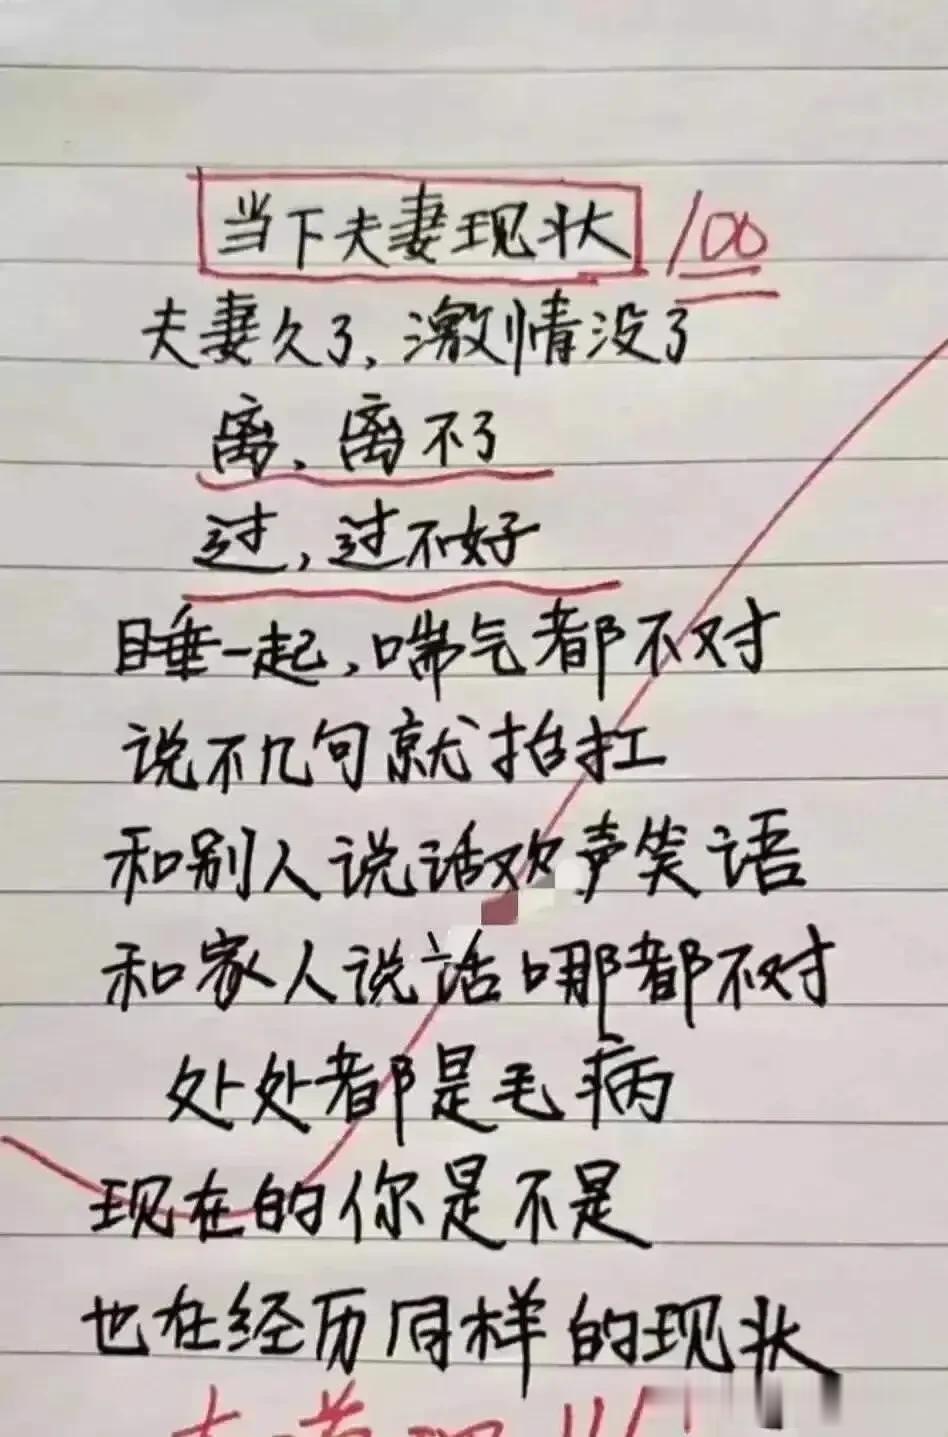 当下夫妻现状 100
夫妻久了,激情没了
离,离不了
过,过不好
睡一起,喘气都不对
说不几句就抬扛
和别人说话欢声笑语
和家人说话哪都不对
处处都是毛病
现在的你是不是
也在经历同样的现状